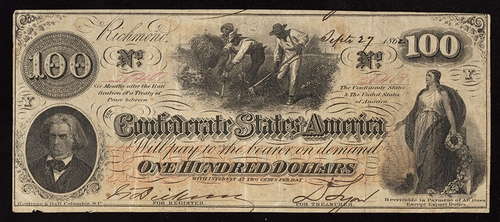 Richmond, Septr 27 1862
No No
100 100
Six Months after the Rati
fication of a Treaty of
Peace between
The Confederate States
& The United States
of America
Y Y
Confederate States America
Will pay to the bearer on demand
ONE HUNDRED DOLLARS
WITH INTEREST AT TWO CENTS PER DAY
FOR REGISTER
FOR TREASURER
Keatinge & Ball, Columbia, S.C.
Receivable in Payment of All dues
Except Export Duties.